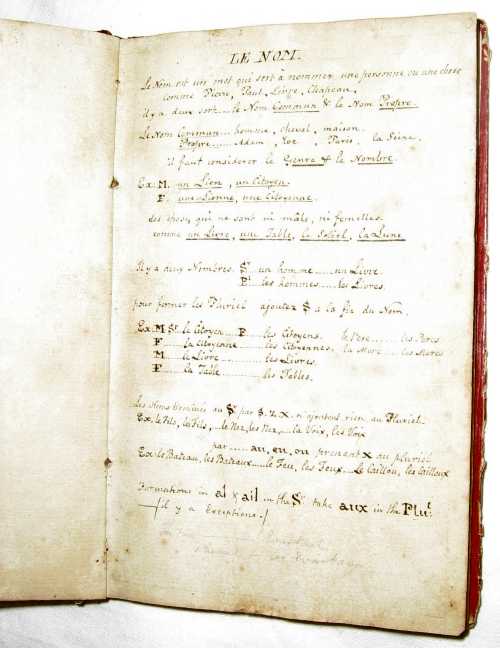 LE NOM.
Le Nom est un mot qui sert à nommer une personne ou une chose
comme Pierre, Paul, Linge, Chapeau,
il y a deux sort.... le Nom Commun & le Nom Propre.
Le Nom Commun.... homme, cheval, maison.
Propre..... Adam, Paris, la Seine.
il faut considerer le Genre & le Nombre.
Ex: M. un Lion, un Citoyen.
F. une Lionne, une Citoyenne.
des choses qui ne sont ni mâles, ni femelles.
comme un Livre, une Table, le Soleil, la Lune
Il y a deux Nombres. Sr. un homme..... un Livre.
Pl. les hommes..... les Livres.
pour former les Pluriel ajoutez S à la fin du Nom.
Ex: M Sr. le Citoyen..... P. les Citoyens. le Pere..... les Peres
F..... la Citoyenne..... les Citoyennes, la Mere..... les Meres
M..... le Livre..... les Livres.
F..... la Table..... les Tables.
Les Noms terminés au Sr. par S. Z. X. n'ajoutent rien au Pluriel.
Ex. le Fils, les Fils,... le Nez, les Nez..... la Voix, les Voix
par..... au, eu, ou prenent X au pluriel
Ex. le Bateau, les Bateaux.... le Feu, les Feux... le Caillou, les Cailloux
Formations in al & ail in the Sr. take aux in the Plul.
(il y a Exceptions.)